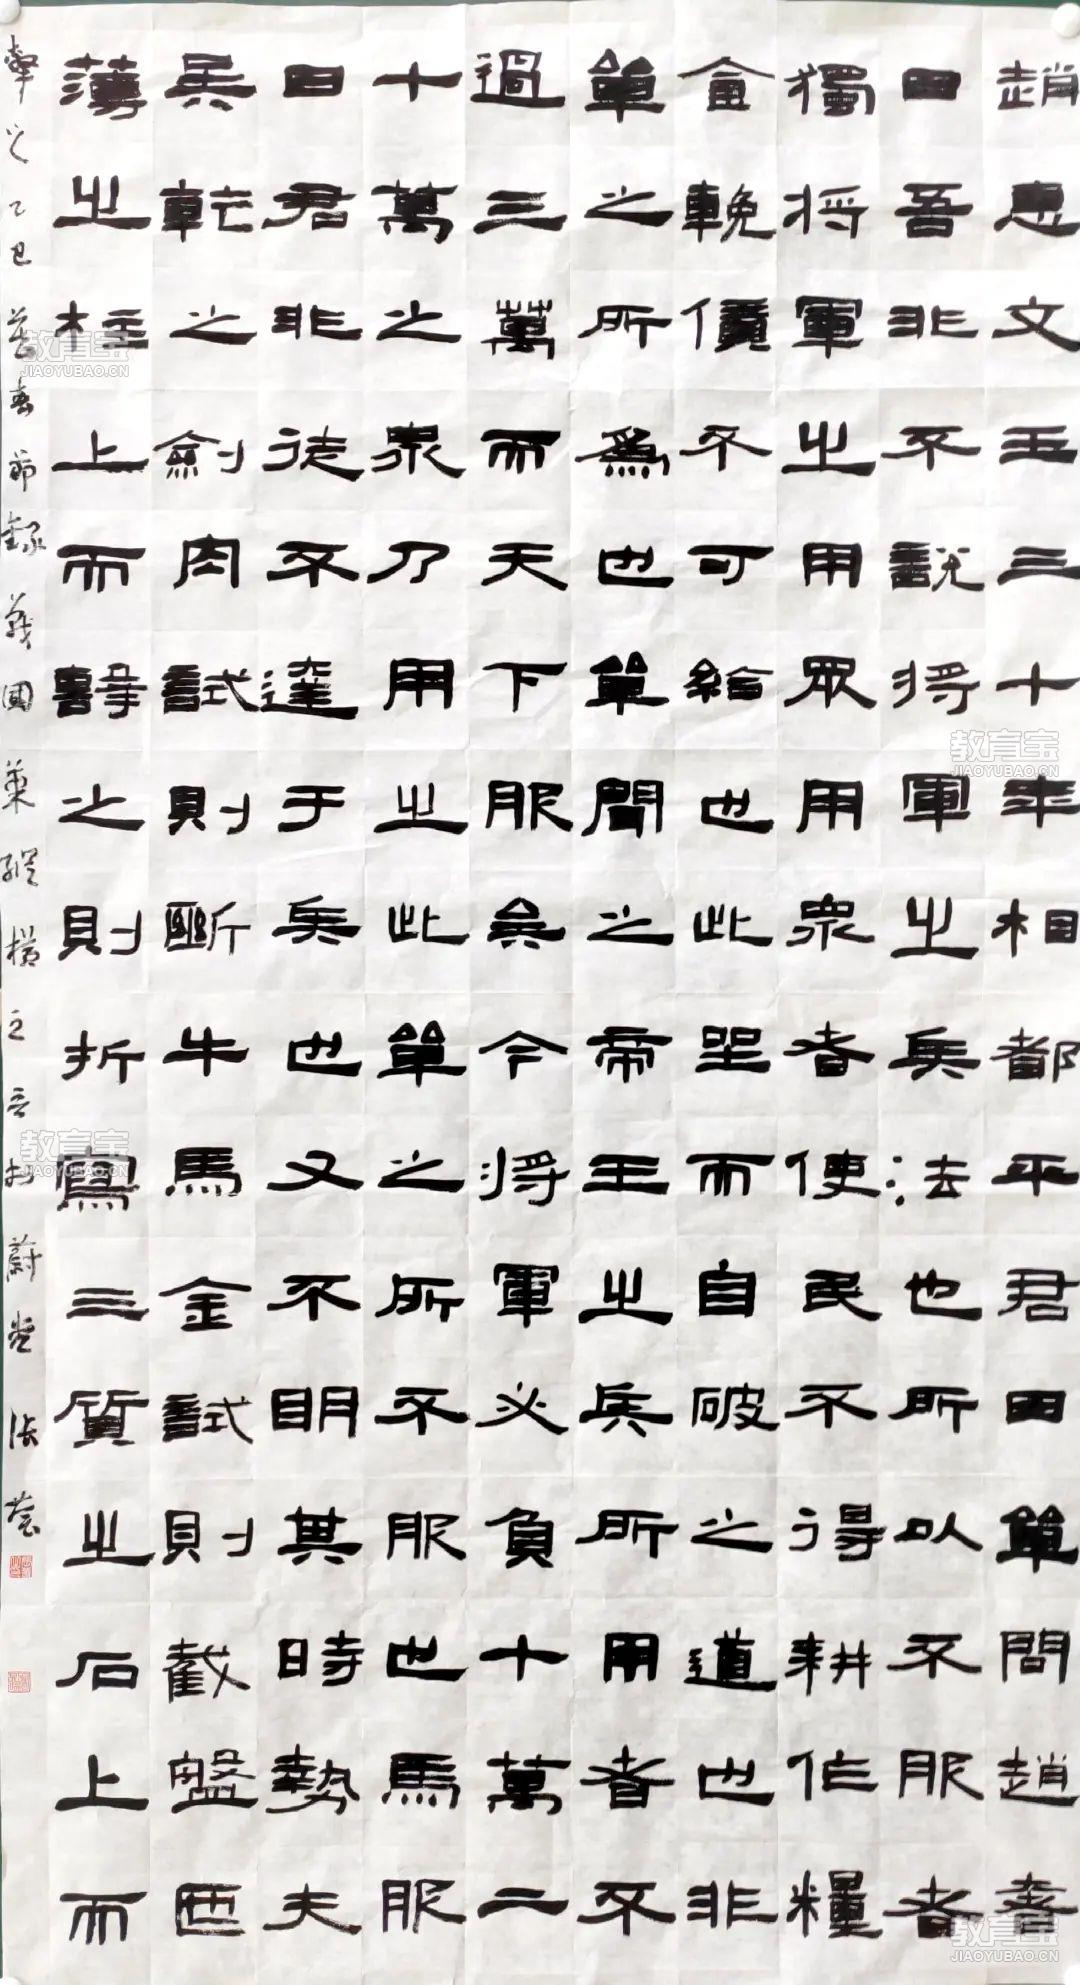 趙惠文王三十年相都平君田單問趙奢
曰吾非不說將軍之兵法也所以不服者
獨將軍之用眾用眾者使民不得耕作糧
食輓價不可給也此坐而自破之道也非
單之所爲也單聞之帝王之兵所用者不
過三萬而天下服矣今將軍必負十萬二
十萬之眾乃用之此單之所不服也馬服
曰君非徒不達于兵也又不明其時勢夫
吳乾之劍肉試則斷牛馬金試則截盤匜
薄之柱上而擊之則折寫三質之石上而
擊之 乙巳暮春節錄戰國策縱橫之言於蔚 張